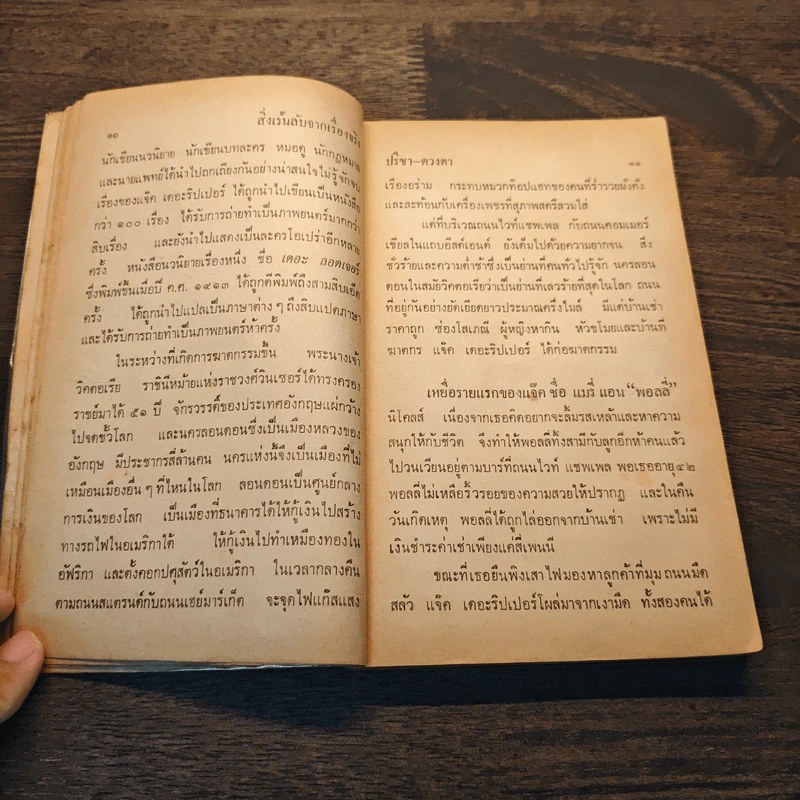 ๑๐
สิ่งเร้นลับจากเรื่องจริง
นักเขียนนวนิยาย นักเขียนบทละคร หมอดู นักกฎหมาย
และนายแพทย์ได้นำไปถกเถียงกันอย่างน่าสนใจไม่รู้จักจบ
เรื่องของแจ๊ค เดอะริปเปอร์ ได้ถูกนำไปเขียนเป็นหนังสือ
กว่า ๑๐๐ เรื่อง ได้รับการถ่ายทำเป็นภาพยนตร์มากกว่า
สิบเรื่อง และยังนำไปแสดงเป็นละครโอเปร่าอีกหลาย
ครั้ง หนังสือนวนิยายเรื่องหนึ่ง ชื่อ เดอะ ลอดเจอร์
ซึ่งพิมพ์ขึ้นเมื่อปี ค.ศ. ๑๙๑๓ ได้ถูกตีพิมพ์ถึงสามสิบเอ็ด
ครั้ง ได้ถูกนำไปแปลเป็นภาษาต่าง ๆ ถึงสิบแปดภาษา
และได้รับการถ่ายทำเป็นภาพยนตร์ห้าครั้ง
ในระหว่างที่เกิดการฆาตกรรมขึ้น พระนางเจ้า
วิคตอเรีย ราชินีหม้ายแห่งราชวงศ์วินเซอร์ได้ทรงครอง
ราชย์มาได้ ๕๑ ปี จักรวรรดิ์ของประเทศอังกฤษแผ่กว้าง
ไปจดขั้วโลก และนครลอนดอนซึ่งเป็นเมืองหลวงของ
อังกฤษ มีประชากรสี่ล้านคน นครแห่งนี้จึงเป็นเมืองที่ไม่
เหมือนเมืองอื่น ๆ ที่ไหนในโลก ลอนดอนเป็นศูนย์กลาง
การเงินของโลก เป็นเมืองที่ธนาคารได้ให้กู้เงินไปสร้าง
ทางรถไฟในอเมริกาใต้ ให้กู้เงินไปทำเหมืองทองใน
อัฟริกา และตั้งคอกปศุสัตว์ในอเมริกา ในเวลากลางคืน
ตามถนนสแตรนด์กับถนนเฮย์มาร์เก็ต จะจุดไฟแก๊สแสง
ปรีชา–ดวงตา
๑๑
เรืองอร่าม กระทบหมวกท๊อปแฮทของคนที่ร่ำรวยมั่งคั่ง
และสะท้อนกับเครื่องเพชรที่สุภาพสตรีสวมใส่
แต่ที่บริเวณถนนไวท์แชพเพล กับถนนคอมเมอร์
เชียลในแถบอีสต์เอนด์ ยังเต็มไปด้วยความยากจน สิ่ง
ชั่วร้ายและความต่ำช้าซึ่งเป็นย่านที่คนทั่วไปรู้จัก นครลอน
ดอนในสมัยวิคตอเรียว่าเป็นย่านที่เลวร้ายที่สุดในโลก ถนน
ที่อยู่กันอย่างยัดเยียดยาวประมาณครึ่งไมล์ มีแต่บ้านเช่า
ราคาถูก ซ่องโสเภณี ผู้หญิงหากิน หัวขโมยและบ้านที่
ฆาตกร แจ๊ค เดอะริปเปอร์ ได้ก่อฆาตกรรม
เหยื่อรายแรกของแจ๊ค ชื่อ แมรี่ แอน “พอลลี่”
นิโคลส์ เนื่องจากเธอคิดอยากจะลิ้มรสเหล้าและหาความ
สนุกให้กับชีวิต จึงทำให้พอลลี่ทิ้งสามีกับลูกอีกห้าคนแล้ว
ไปวนเวียนอยู่ตามบาร์ที่ถนนไวท์ แชพเพล พอเธออายุ๔๒
พอลลี่ไม่เหลือริ้วรอยของความสวยให้ปรากฏ และในคืน
วันเกิดเหตุ พอลลี่ได้ถูกไล่ออกจากบ้านเช่า เพราะไม่มี
เงินชำระค่าเช่าเพียงแค่สี่เพนนี
ขณะที่เธอยืนพิงเสาไฟมองหาลูกค้าที่มุมถนนมืด
สลัว แจ๊ค เดอะริปเปอร์โผล่มาจากเงามืด ทั้งสองคนได้